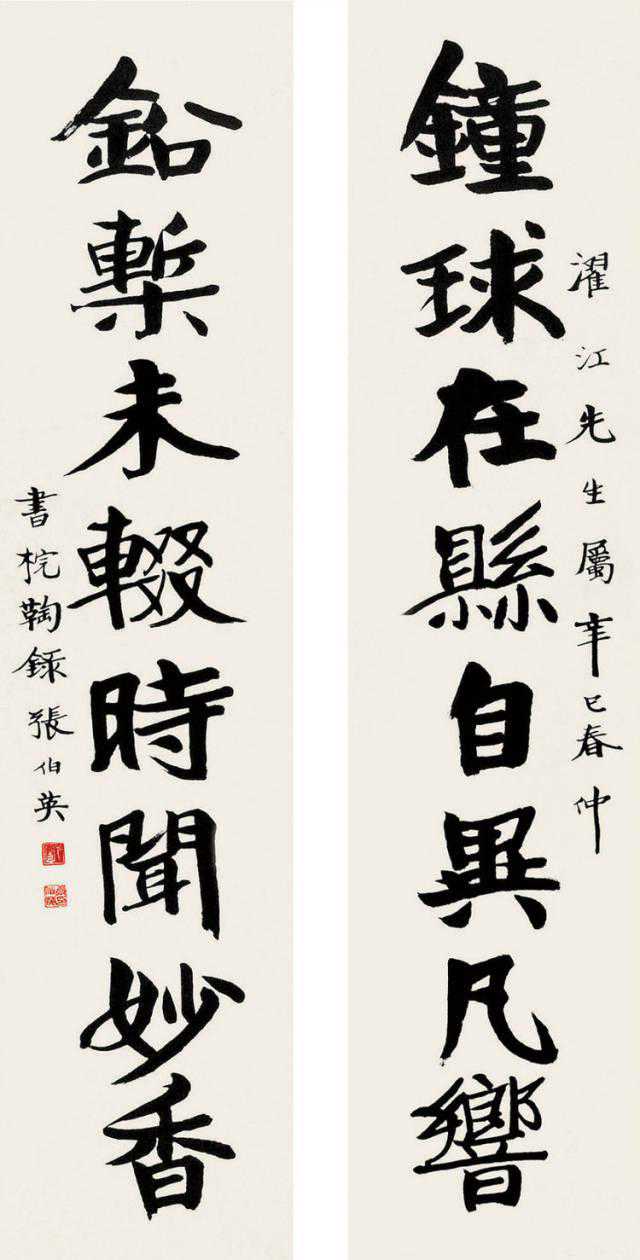 鐘球在縣自異凡響
濯江先生屬辛巳春仲
鉛槧未輟時聞妙香
書梡鞫錄張伯英